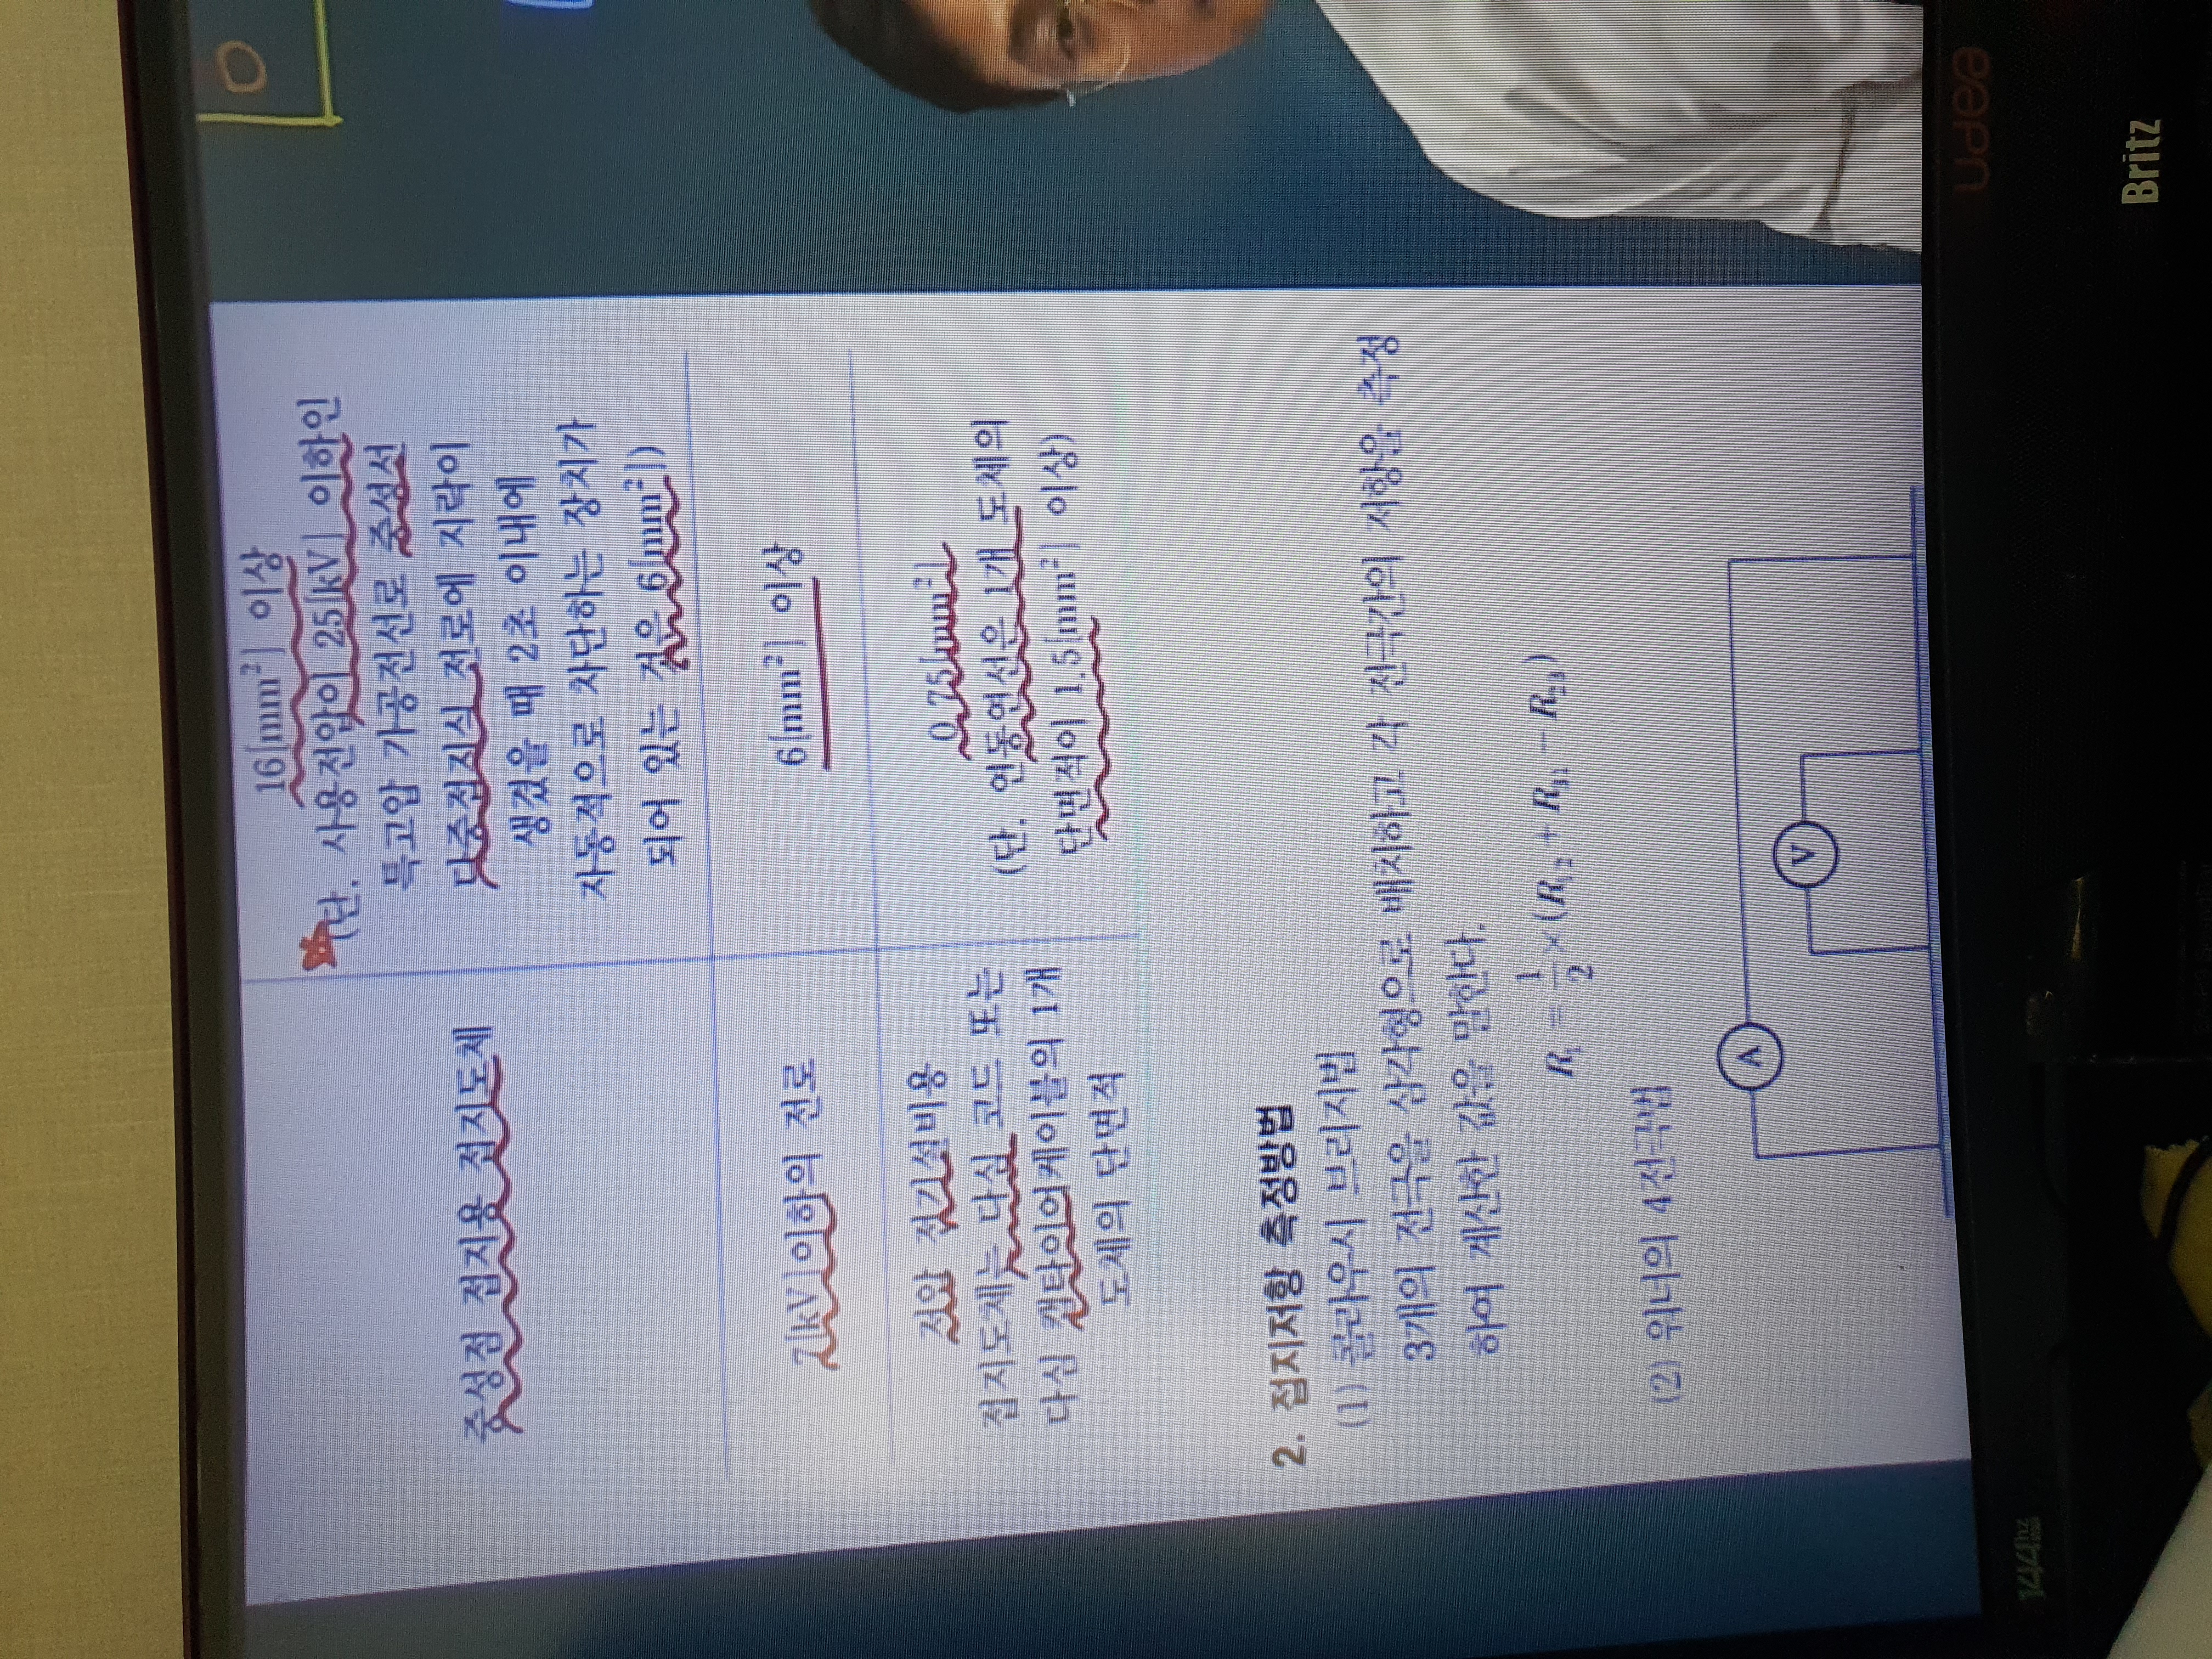 중성점 접지용 접지도체
16[mm²] 이상
(단, 사용전압이 25[kV] 이하인
특고압 가공전선로 중성선
다중접지식 전로에 지락이
생겼을 때 2초 이내에
자동적으로 차단하는 장치가
되어 있는 것은 6[mm²])
7[kV]이하의 전로
6[mm²] 이상
저압 전기설비용
접지도체는 다심 코드 또는
다심 캡타이어케이블의 1개
도체의 단면적
0.75[mm²]
(단, 연동연선은 1개 도체의
단면적이 1.5[mm²] 이상)
2. 접지저항 측정방법
(1) 콜라우시 브리지법
3개의 전극을 삼각형으로 배치하고 각 전극간의 저항을 측정
하여 계산한 값을 말한다.
R₁ = 1/2 × (R₁₂ + R₃₁ − R₂₃)
(2) 워너의 4전극법
A
V
144hz
Britz